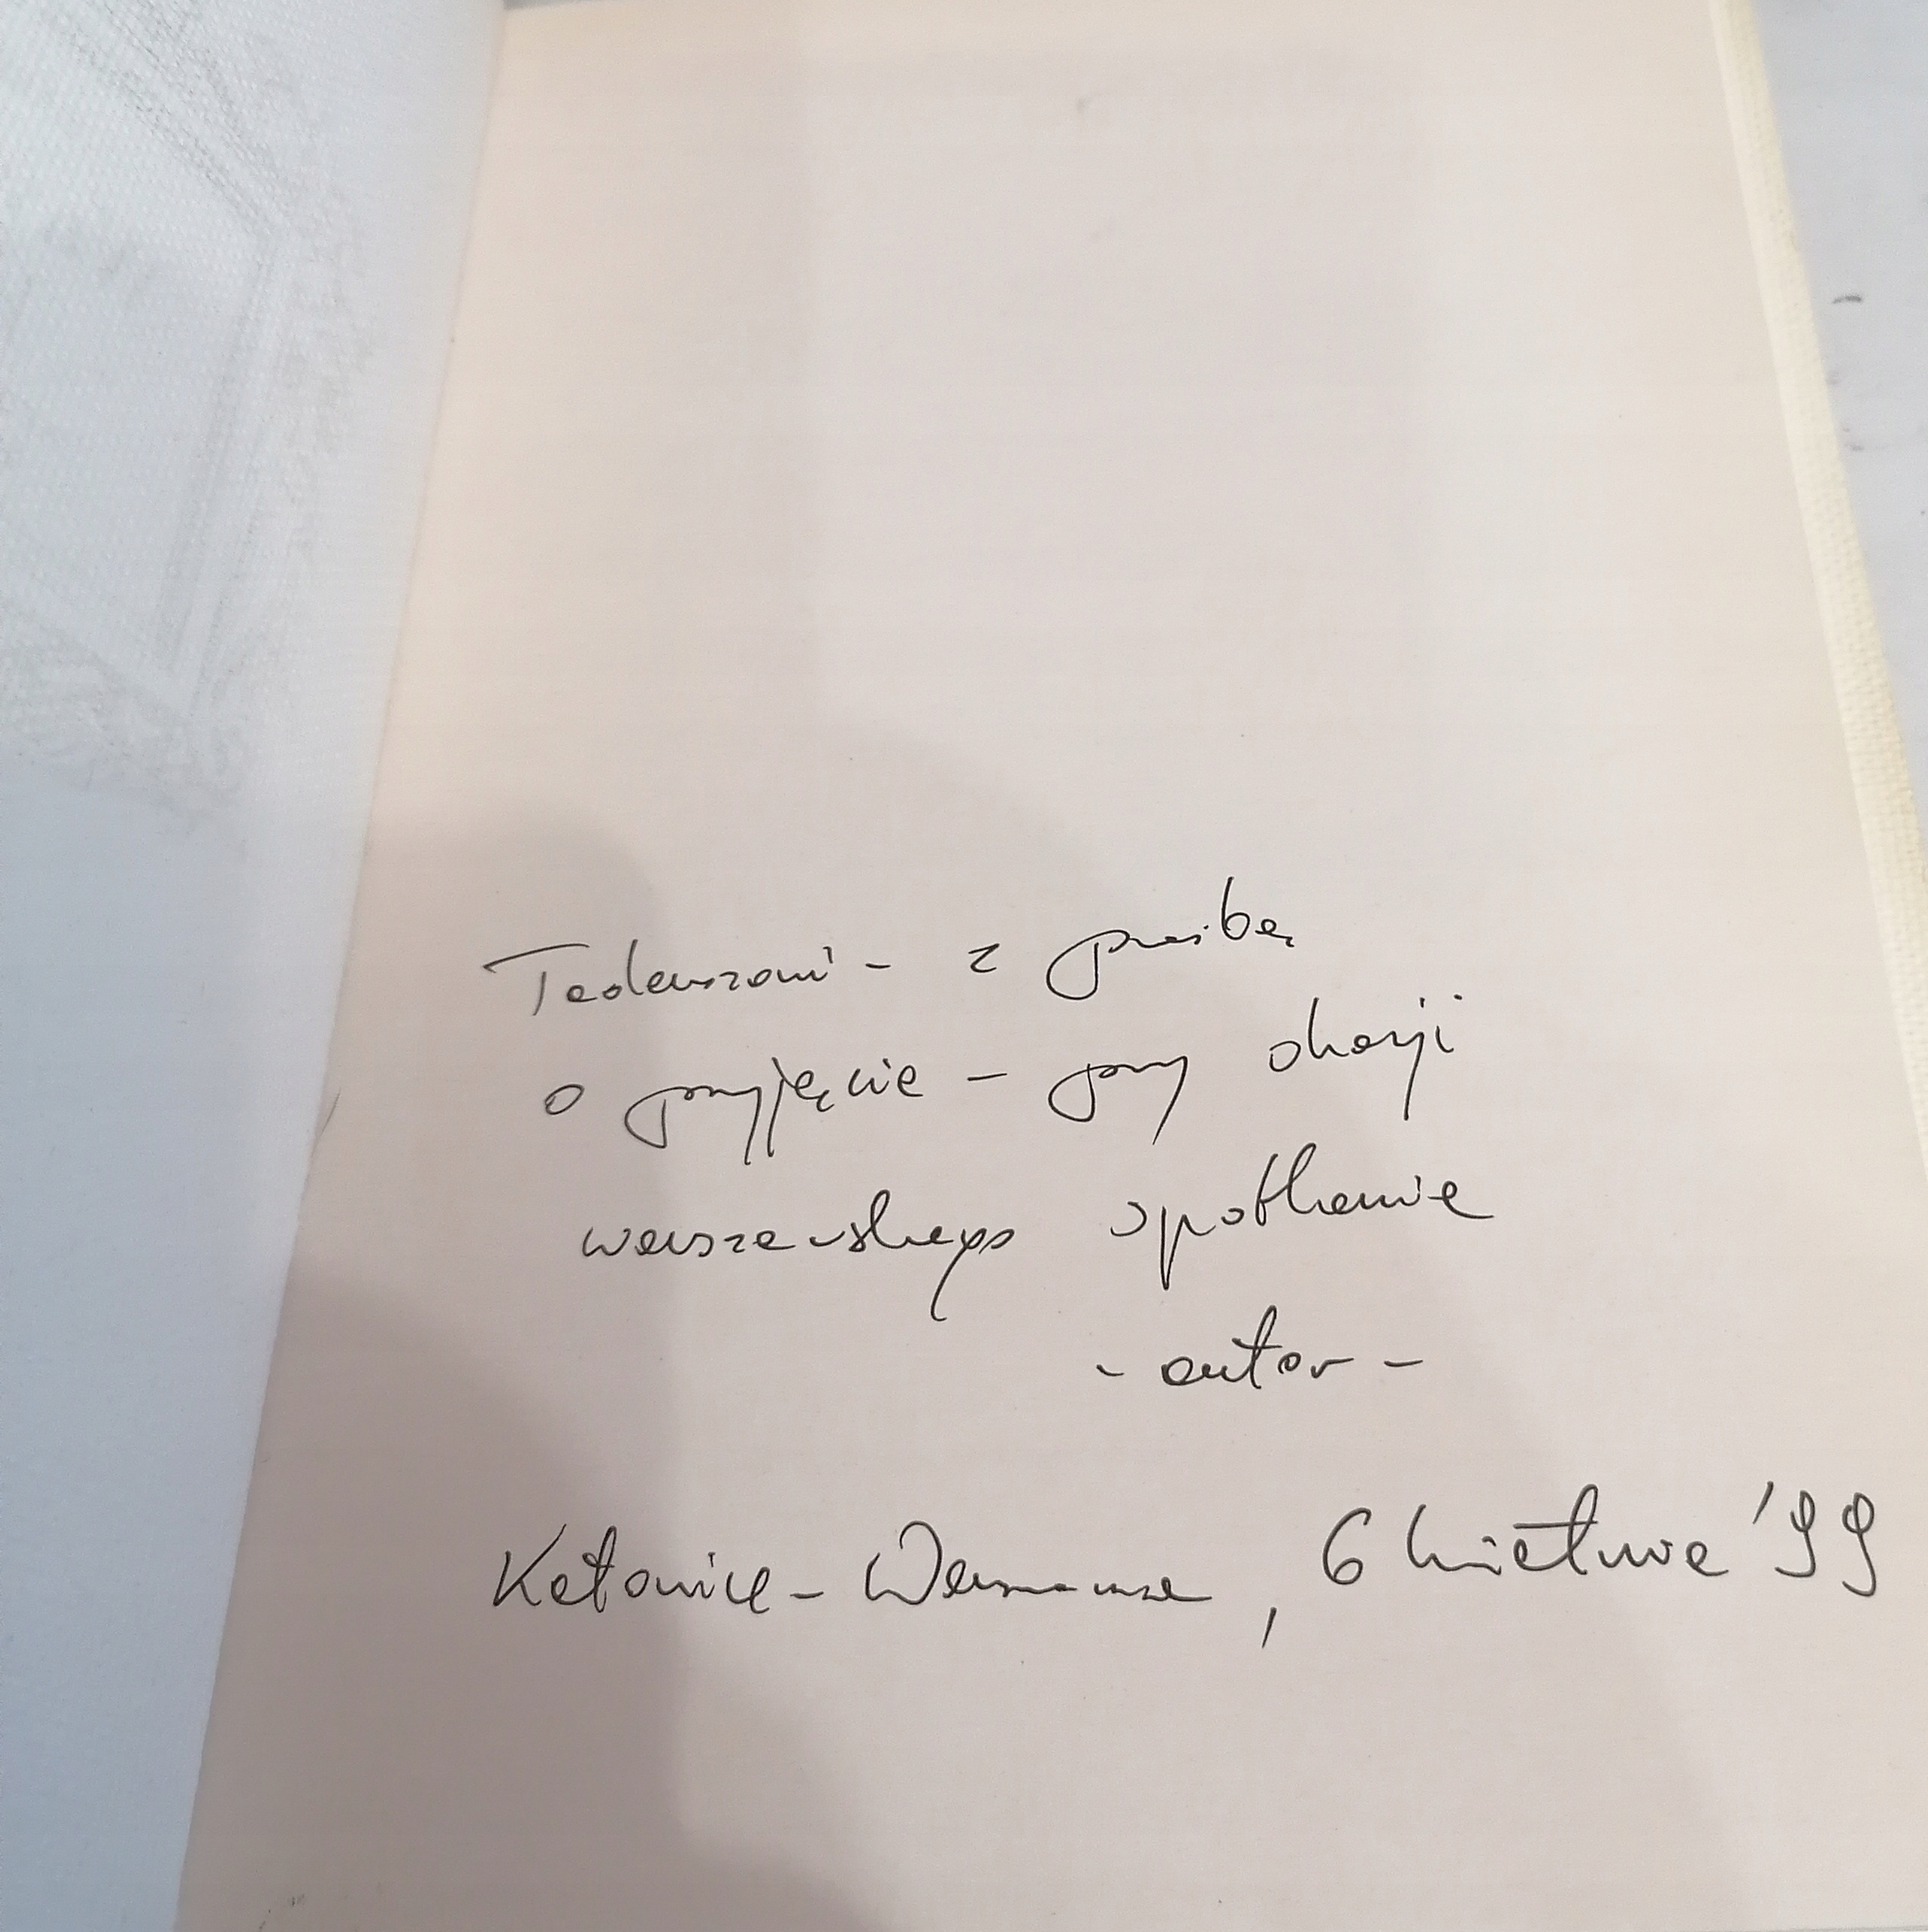 Tadeuszowi – z prośbą
o przyjęcie – przy okazji
warszawskiego spotkania
- autor -
Katowice – Warszawa, 6 kwietnia '99